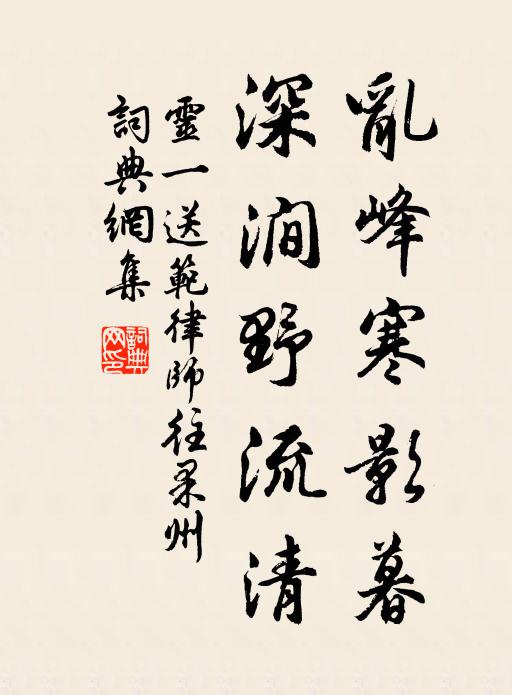 亂峰寒影暮
深澗野流清
靈一送範律師往果州
詞典網集
詞典網印